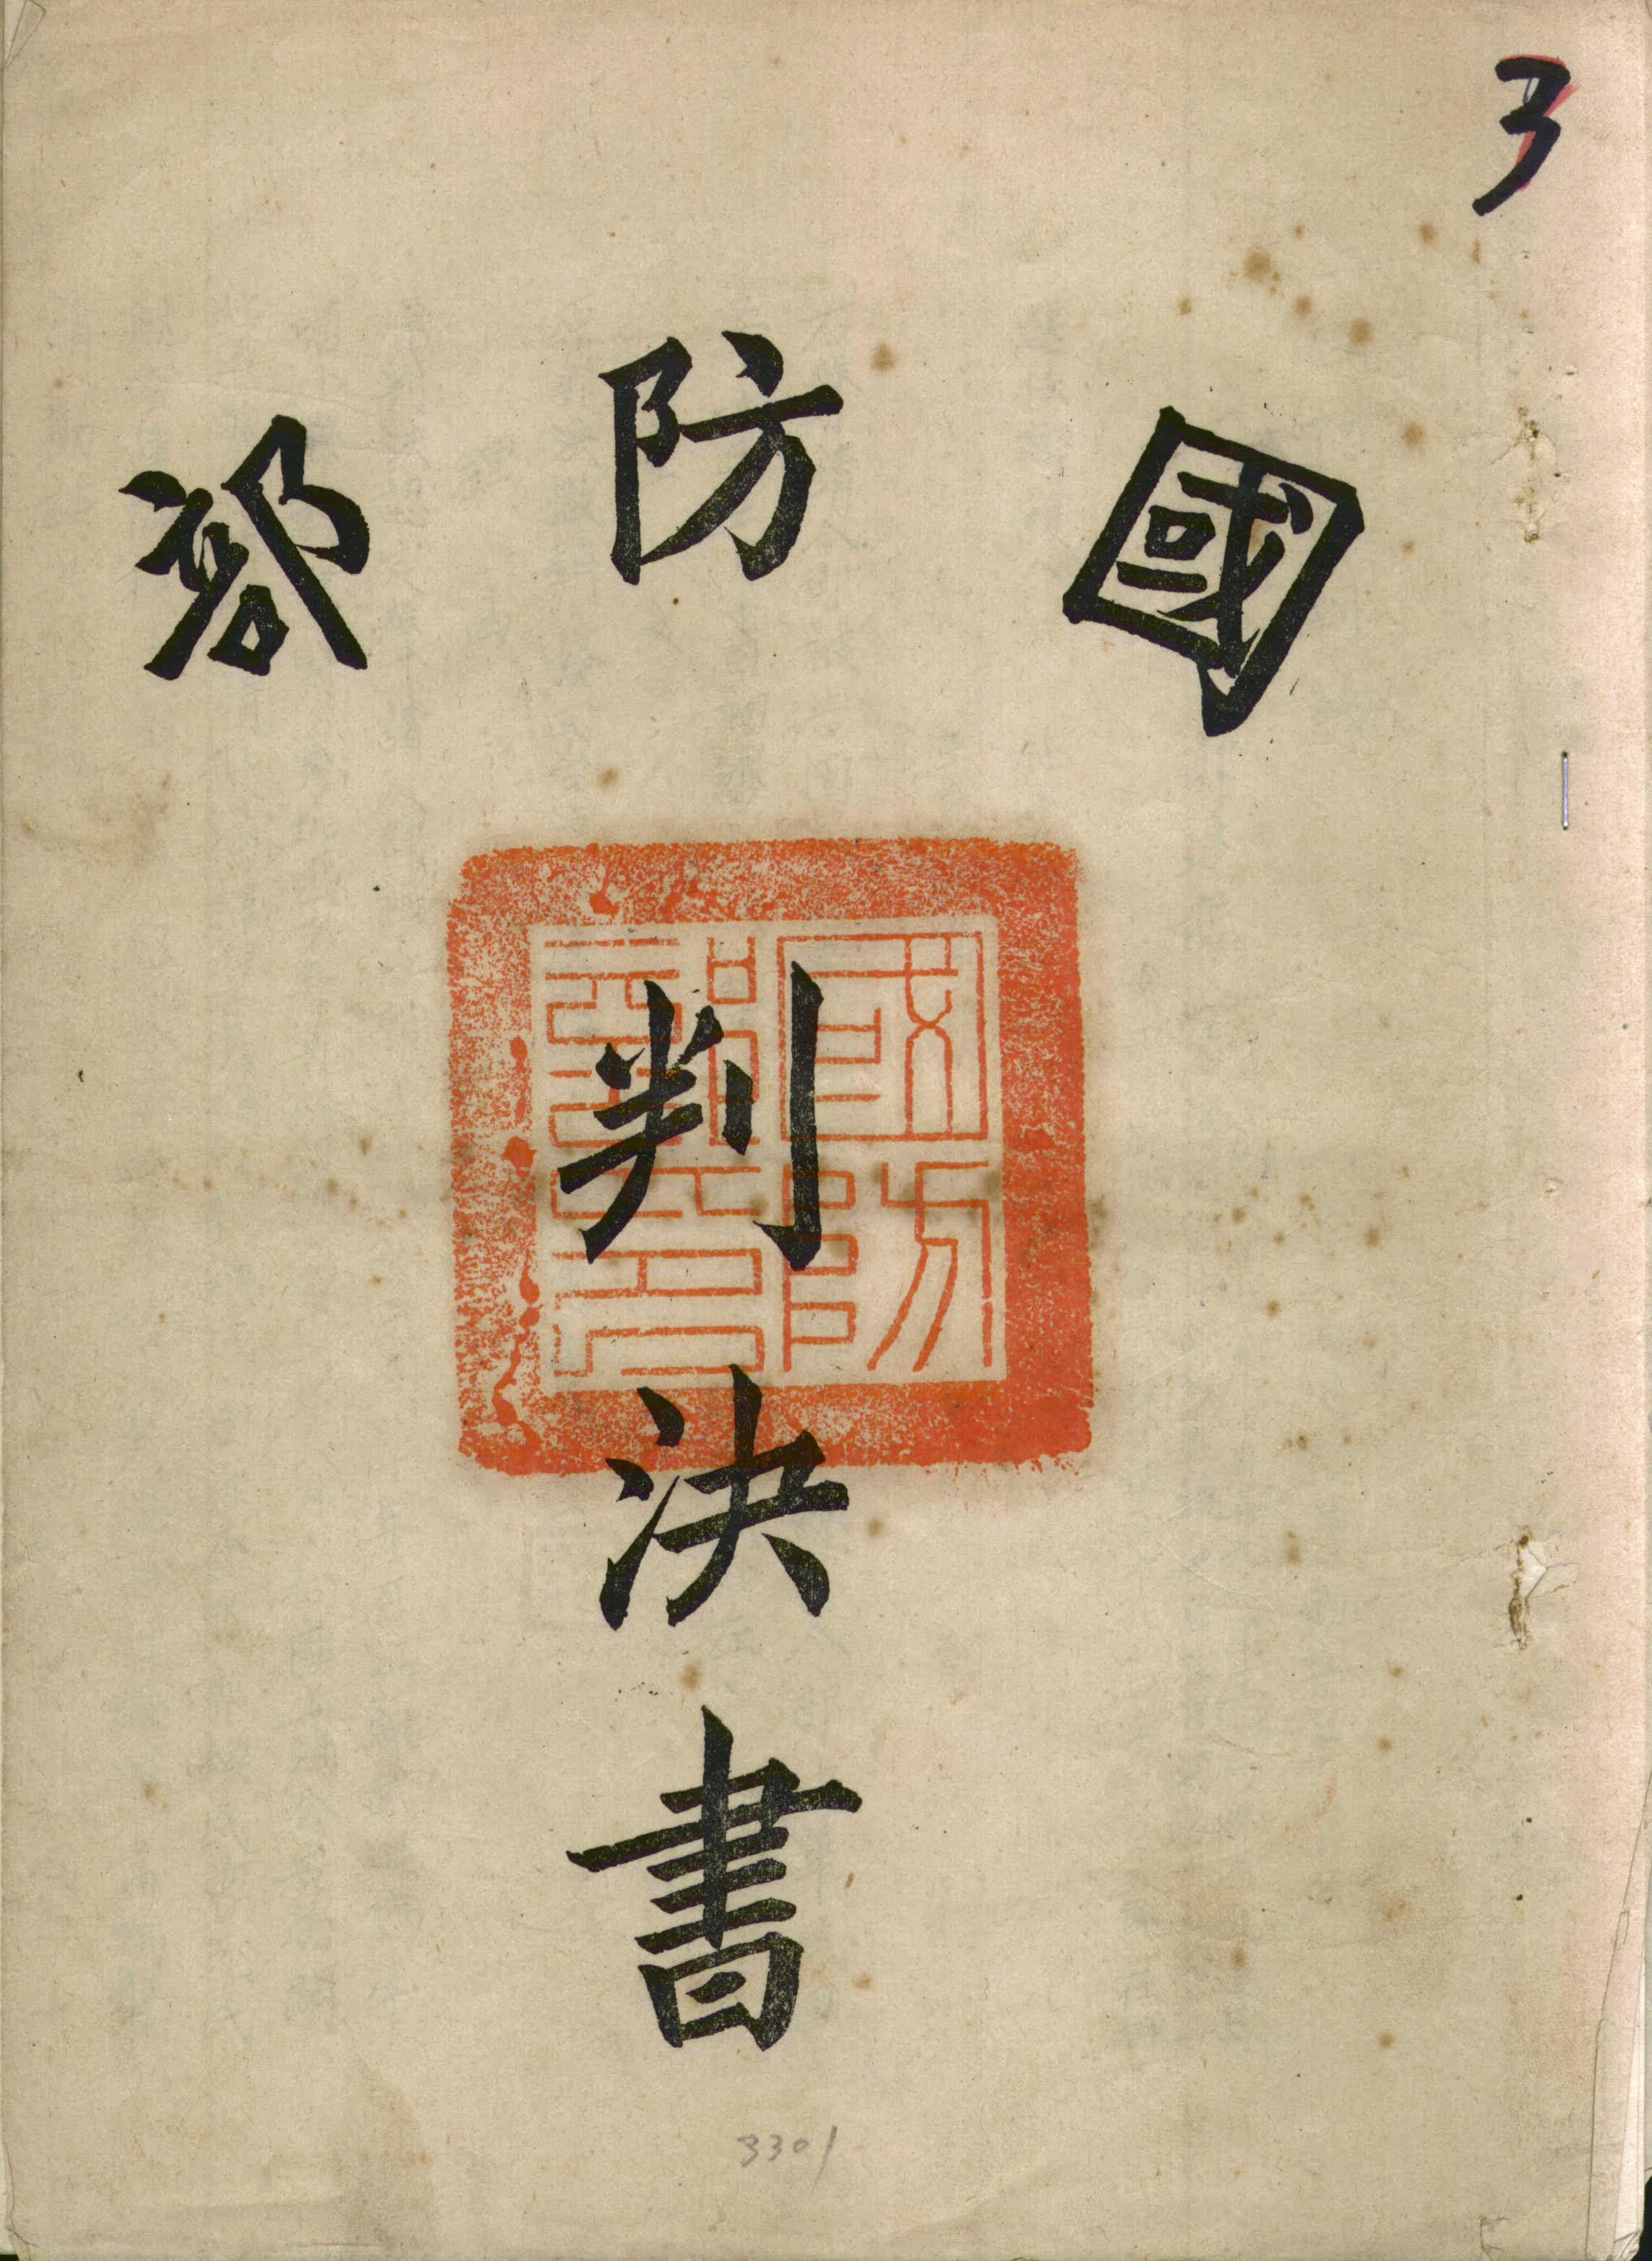 3
國防部
判決書
國防部印
3301